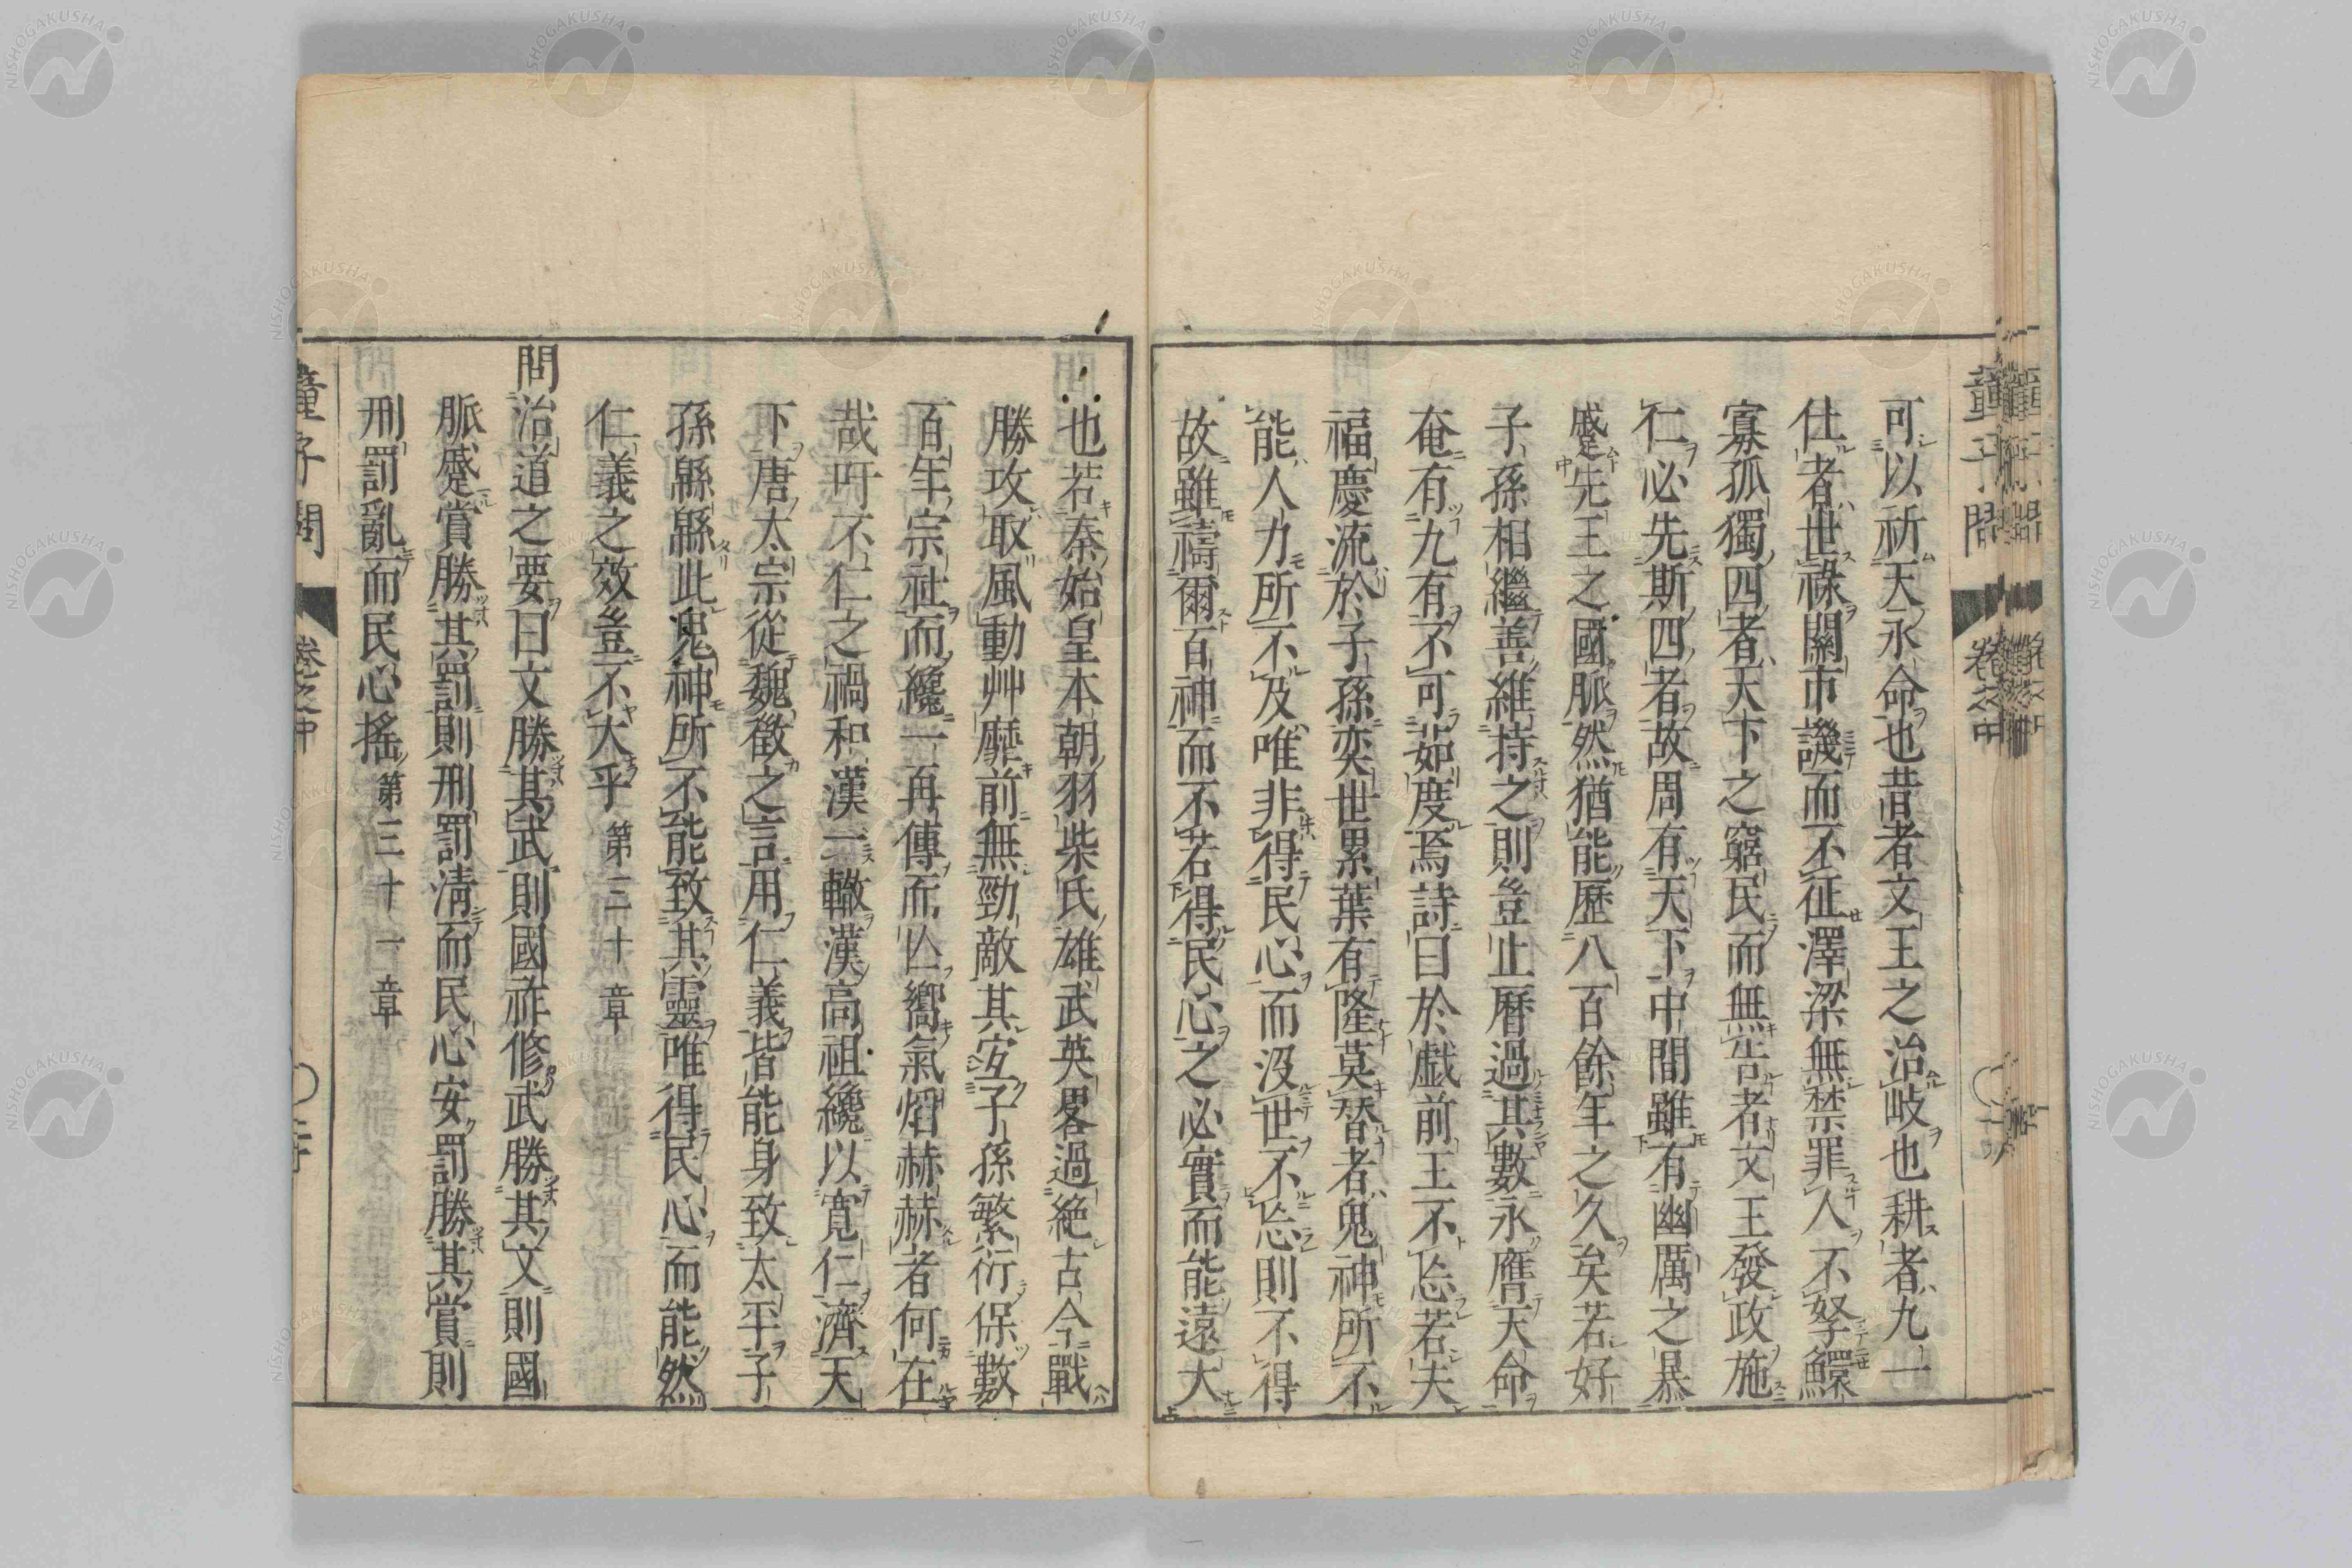 可以祈天永命也昔者文王之治岐也耕者九一
仕者世祿關市譏而不征澤梁無禁罪人不孥鰥
寡孤獨四者天下之窮民而無告者文王發政施
仁必先斯四者故周有天下中間雖有幽厲之暴
蹙先王之國脈然猶能歷八百餘年之久矣若好
子孫相繼善維持之則豈止曆過其數永膺天命
奄有九有不可茹度焉詩曰於戲前王不忘若夫
福慶流於子孫奕世累葉有隆莫替者鬼神所不
能人力所不及唯非得民心而沒世不忘則不得
故雖禱爾百神而不若得民心之必實而能遠大
也若秦始皇本朝羽柴氏雄武英畧過絕古今戰
勝攻取風動艸靡前無勁敵其宜子孫繁衍保數
百年宗祉而纔一再傳而亾嚮氣熖赫赫者何在
哉吁不仁之禍和漢一轍漢高祖纔以寬仁濟天
下唐太宗從魏徵之言用仁義皆能身致太平子
孫緜緜此鬼神所不能致其靈唯得民心而能然
仁義之效豈不大乎 第三十章
問治道之要曰文勝其武則國祚修武勝其文則國
脈蹙賞勝其罰則刑罰淸而民心安罰勝其賞則
刑罰亂而民心搖 第三十一章
童子問 卷之中
童子問 卷之中
NISHOGAKUSHA